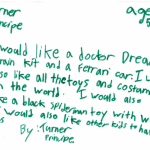 urner age
ncipe 5
would like a doctor Dread
rain kit and a Ferrari car. I w
so like all the toys and costum
n the world. I would also
ke a black spiderman toy with w
I would also like other kids to ha
s
By: Turner
Principe